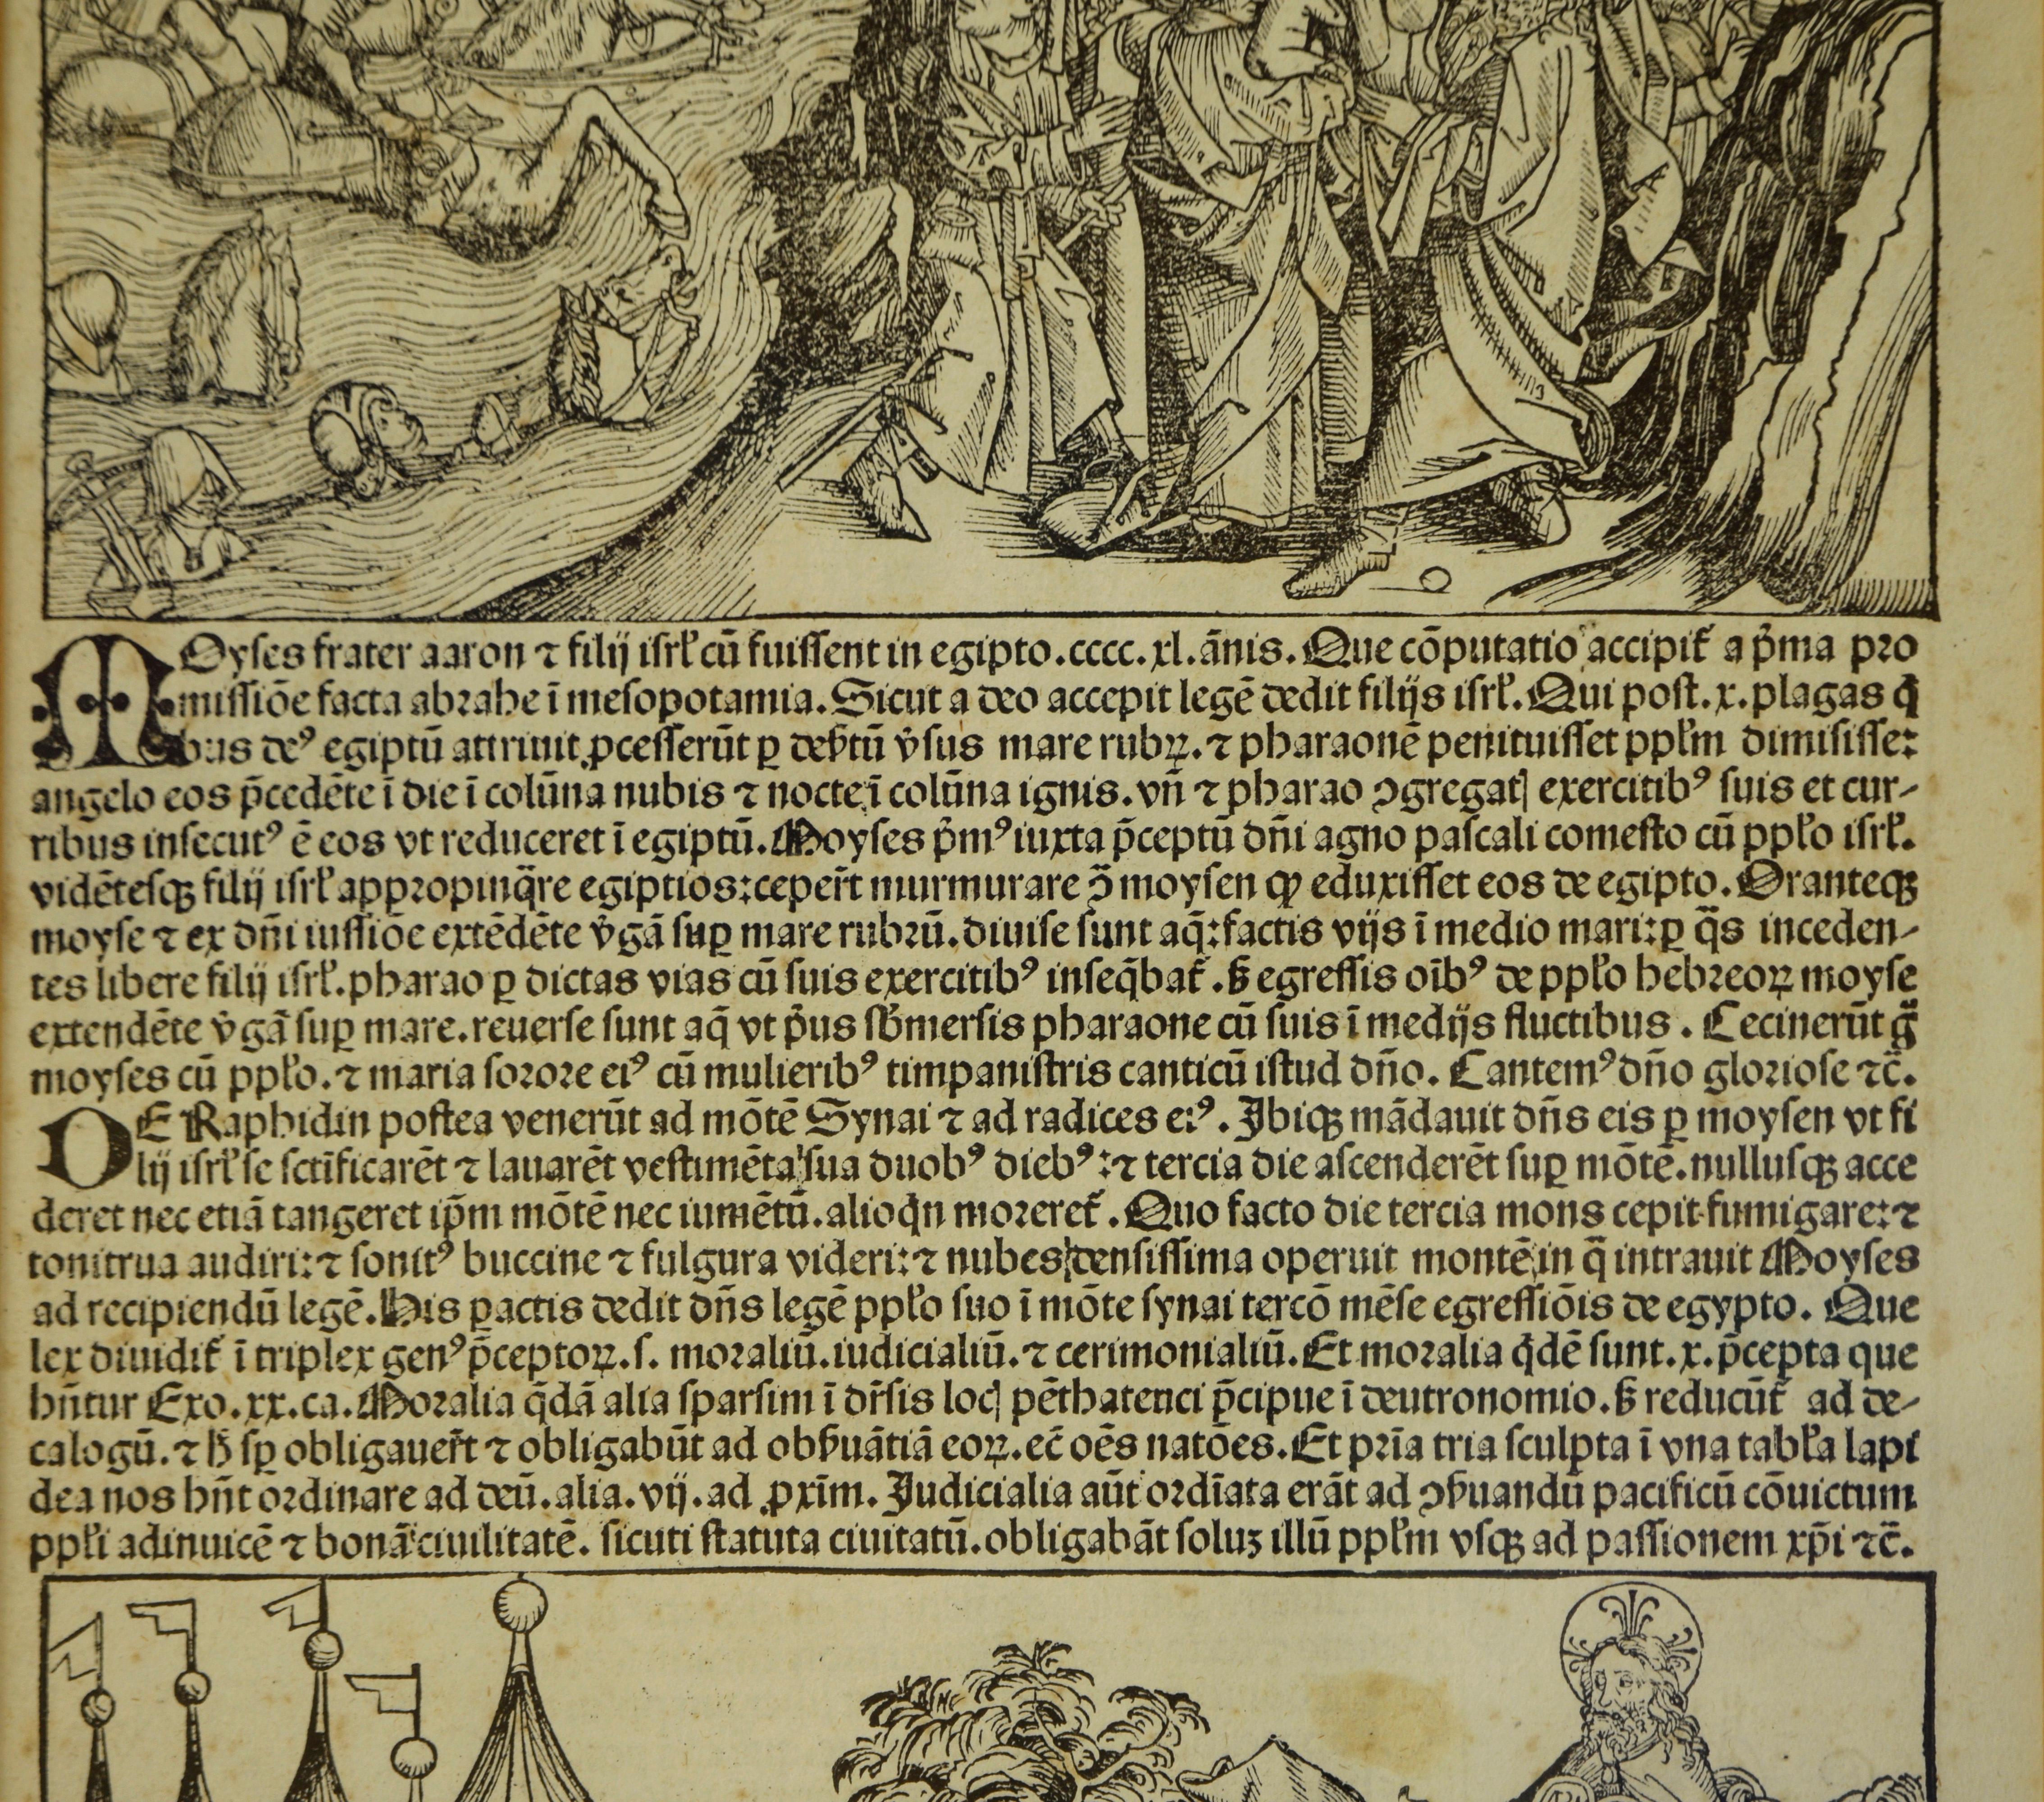 MOyses frater aaron ⁊ filij isrl̕ cū fuissent in egipto.cccc.xl.ānis. Que cōputatio accipit̕ a p̓ma pro
missiōe facta abrahe ī mesopotamia. Sicut a deo accepit legē dedit filijs isrl̕. Qui post.x.plagas q̓
bus deꝰ egiptū attriuit ꝓcesserūt ꝑ deb̓tū v̓sus mare rubꝝ. ⁊ pharaonē penituisset ppl̕m dimisisse:
angelo eos p̄cedēte ī die ī colūna nubis ⁊ nocte ī colūna ignis. vn̄ ⁊ pharao ꝯgregatꝭ exercitibꝰ suis et cur-
ribus insecutꝰ ē eos vt reduceret ī egiptū. Moyses p̓mꝰ iuxta p̄ceptū dn̄i agno pascali comesto cū ppl̕o isrl̕.
vidētesqꝫ filij isrl̕ appropinq̈re egiptios: ceper̄t murmurare ꝯ̄ moysen ꝙ eduxisset eos de egipto. Oranteqꝫ
moyse ⁊ ex dn̄i iussiōe extēdēte v̓gā suꝑ mare rubrū. diuise sunt aq̄: factis vijs ī medio mari: ꝑ q̈s inceden-
tes libere filij isrl̕. pharao ꝑ dictas vias cū suis exercitibꝰ inseq̄bat̕. ẜ egressis oībꝰ de ppl̕o hebreoꝝ moyse
extendēte v̓gā suꝑ mare. reuerse sunt aq̄ vt p̓us sb̓mersis pharaone cū suis ī medijs fluctibus. Cecinerūt g̈
moyses cū ppl̕o. ⁊ maria sorore eiꝰ cū mulieribꝰ timpanistris canticū istud dn̄o. Cantemꝰ dn̄o gloriose ⁊c̄.
DE Raphidin postea venerūt ad mōtē Synai ⁊ ad radices eiꝰ. Ibiqꝫ mādauit dn̄s eis ꝑ moysen vt fi
lij isrl̕ se sctīficarēt ⁊ lauarēt vestimēta sua duobꝰ diebꝰ: ⁊ tercia die ascenderēt suꝑ mōtē. nullusqꝫ acce
deret nec etiā tangeret ip̄m mōtē nec iumētū. alioq̓n moreret̕. Quo facto die tercia mons cepit fumigare: ⁊
tonitrua audiri: ⁊ sonitꝰ buccine ⁊ fulgura videri: ⁊ nubes densissima operuit montē in q̄ intrauit Moyses
ad recipiendū legē. His ꝑactis dedit dn̄s legē ppl̕o suo ī mōte synai tercō mēse egressiōis de egypto. Que
lex diuidit̕ ī triplex genꝰ p̄ceptoꝝ. s. moraliū. iudicialiū. ⁊ cerimonialiū. Et moralia q̓dē sunt.x.p̄cepta que
hn̄tur Exo.xx.ca. Moralia q̄dā alia sparsim ī dr̄sis locꝭ pēthatenci p̄cipue ī deutronomio. ẜ reducūt̕ ad de-
calogū. ⁊ h̓ sꝑ obligauer̄t ⁊ obligabūt ad obẜuātiā eoꝝ. ec̄ oēs natōes. Et prīa tria sculpta ī vna tabl̕a lapi
dea nos hn̄t ordinare ad deū. alia.vij. ad ꝓxīm. Iudicialia aūt ordīata erāt ad ꝯẜuandū pacificū cōuictum
ppl̕i adinuicē ⁊ bonā ciuilitatē. sicuti statuta ciuitatū. obligabāt soluꝫ illū ppl̕m vsqꝫ ad passionem xp̄i ⁊c̄.